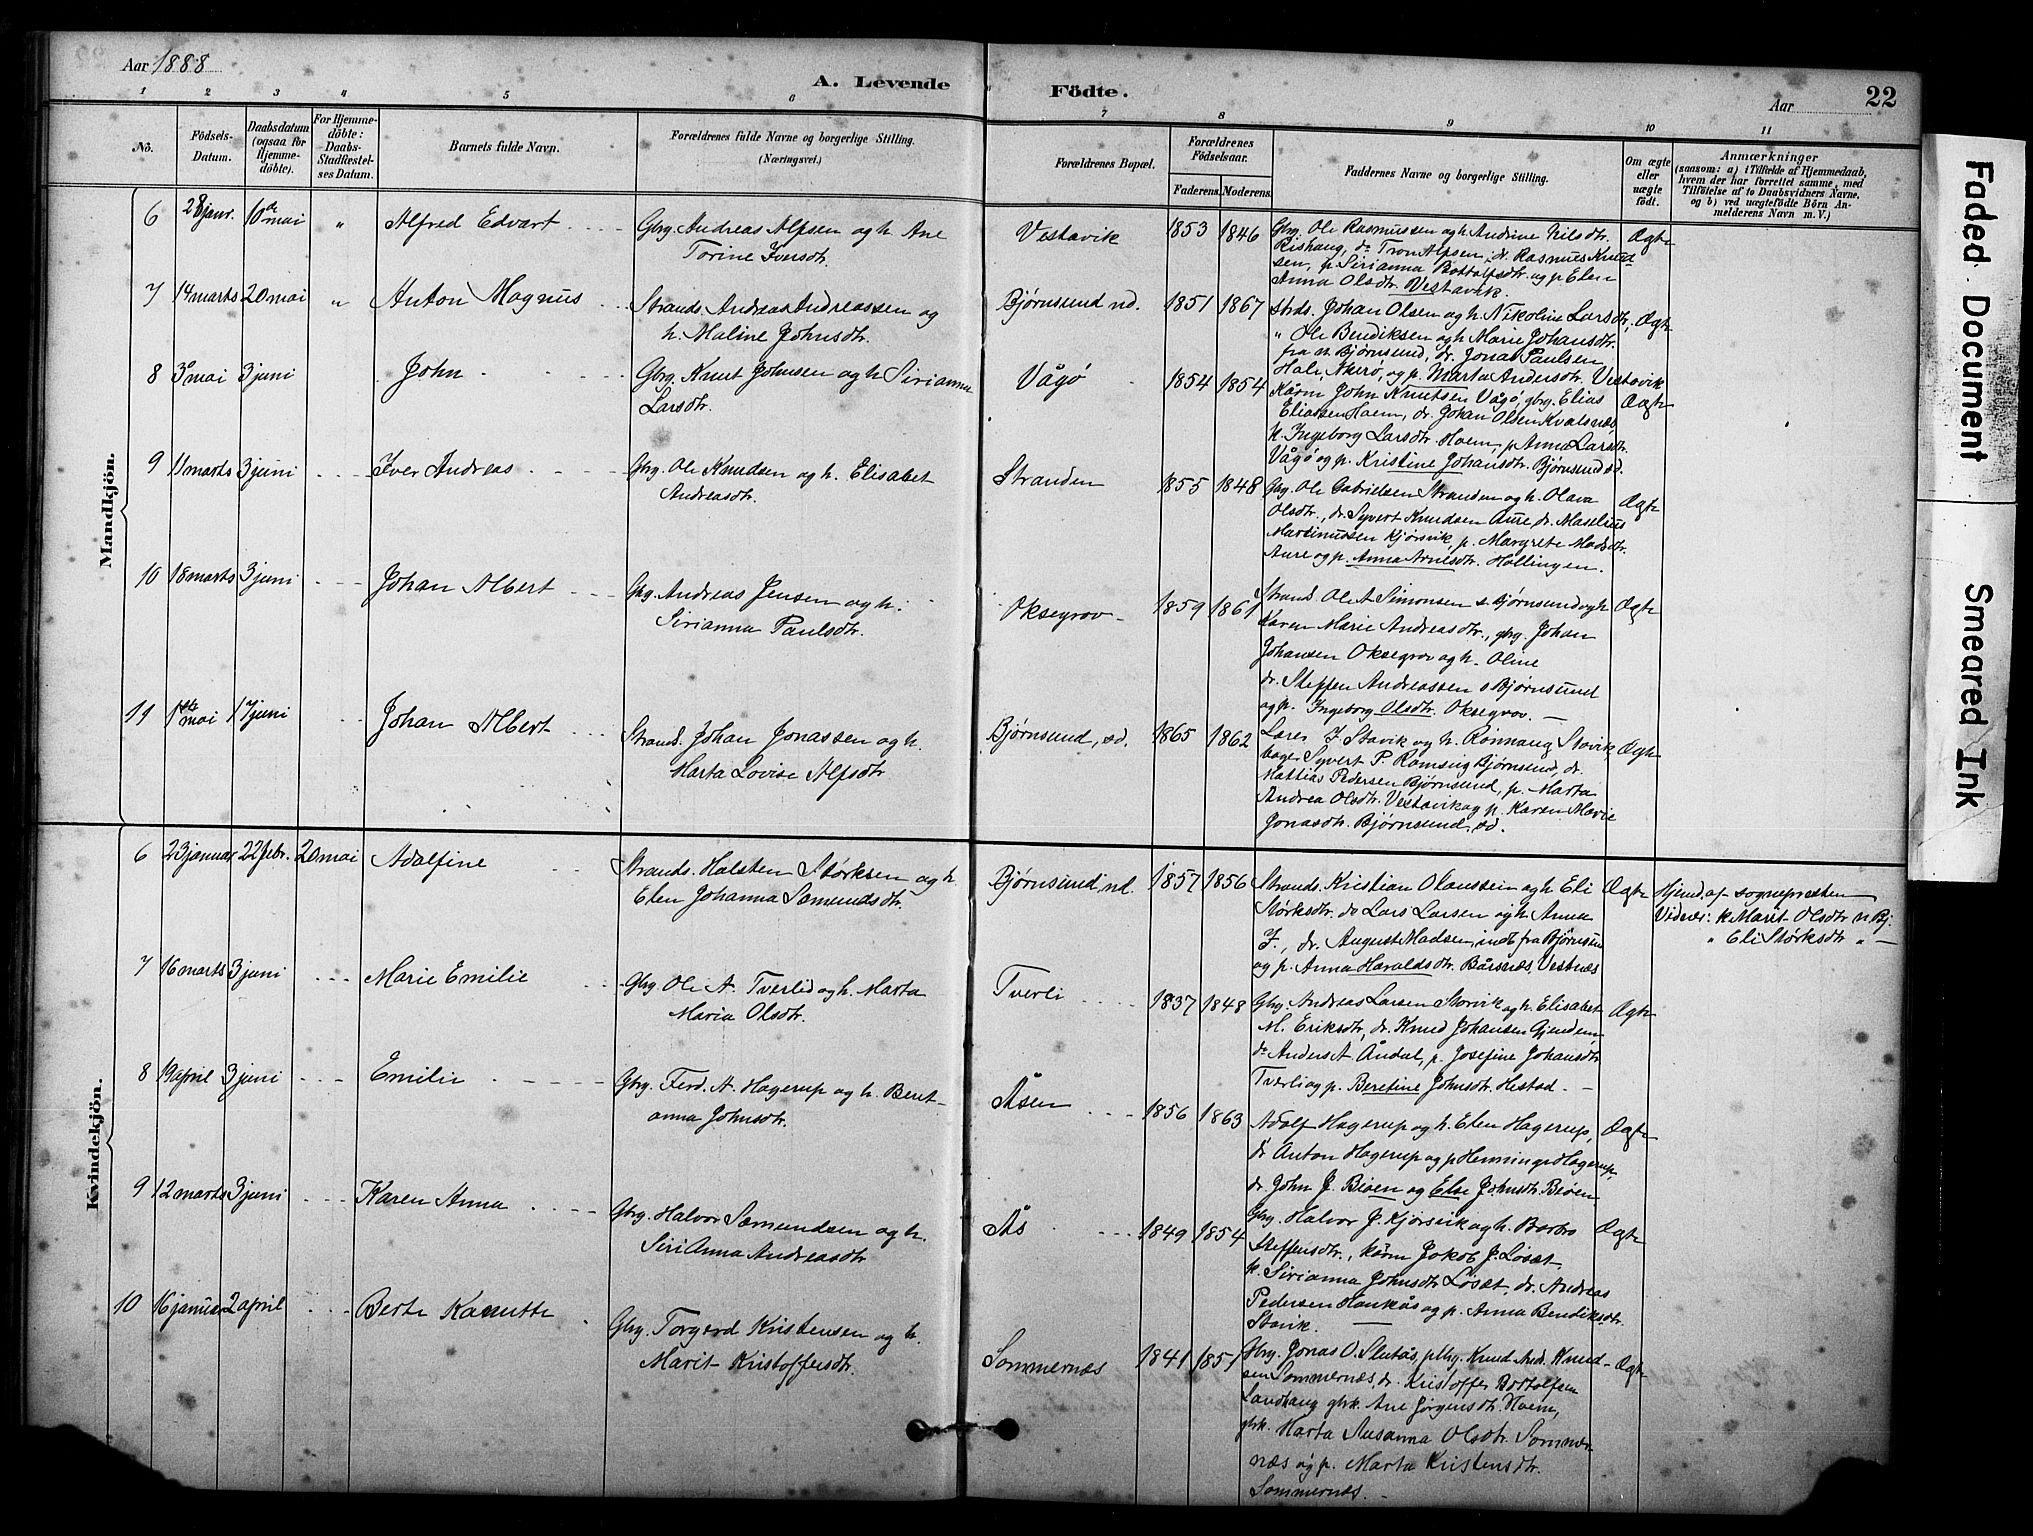 Aar 1888
A. Levende Födte.
Aar
22
1 2 3 4 5 6 7 8 9 10 11
No.
Födsels-
Datum.
Daabsdatum
(ogsaa for
Hjemme-
döbte).
For Hjemme-
döbte:
Daabs-
Stadfæstel-
ses Datum.
Barnets fulde Navn.
Forældrenes fulde Navne og borgerlige Stilling.
(Næringsvei.)
Forældrenes Bopæl.
Forældrenes
Födselsaar.
Faderens.
Moderens.
Faddernes Navne og borgerlige Stilling.
Om ægte
eller
uægte
födt.
Anmærkninger
(saasom: a) i Tilfælde af Hjemmedaab,
hvem der har forrettet samme, med
Tilföielse af to Daabsvidners Navne,
og b) ved uægtefödte Börn An-
melderens Navn m. V.)
Mandkjön.
6 28 janr. 10de mai " Alfred Edvart
Gbrg. Andreas Alfsen og h. Ane
Torine Iversdtr.
Vestavik 1853 1846
Gbrg. Ole Rasmussen og h. Andrine Nilsdtr.
Rishaug, dr. Tron Alfsen, dr. Rasmus Knud-
sen, p. Sirianna Bottolfsdtr. og p. Elen
Anna Olsdtr. Vestavik.
Ægte
7 14 marts 20 mai " Anton Magnus
Strands. Andreas Andreassen og
h. Maline Johnsdtr.
Bjørnsund nd. 1851 1867
Strds. Johan Olsen og h. Nikoline Larsdtr.
" Ole Bendiksen og h. Marie Johansdtr.
fra n. Bjørnsund, dr. Jonas Paulsen
Hale, Akerø, og p. Marta Andersdtr. Vestavik
Ægte
8 3 mai 3 juni John
Gbrg. Knut Johnsen og h. Sirianna
Larsdtr.
Vågø 1854 1854
Kårm. John Knutsen Vågø, gbrg. Elias
Eliassen Hoem, dr. Johan Olsen Kvalsnæs
k. Ingeborg Larsdtr. Hoem, p. Anna Larsdtr.
Vågø og p. Kristine Johansdtr. Bjørnsund sd.
Ægte
9 11 marts 3 juni Iver Andreas
Gbrg. Ole Knudsen og h. Elisabet
Andreasdtr.
Stranden 1855 1848
Gbrg. Ole Gabrielsen Stranden og h. Olava
Olsdtr., dr. Syvert Knudsen Aure dr. Maselius
Martinussen Kjørsvik, p. Margrete Madsdtr.
Aure og p. Anna Arnesdtr. Hollingen.
Ægte
10 18 marts 3 juni Johan Albert
Gbrg. Andreas Jensen og h.
Sirianna Paulsdtr.
Oksegrov 1859 1861
Strands. Ole A Simonsen s Bjørnsund og h
Karen Marie Andreasdtr., gbrg. Johan
Johansen Oksegrov og h. Oline
dr. Steffen Andreassen s Bjørnsund
og p. Ingeborg Olsdtr. Oksegrov.
Ægte
11 1ste mai 17 juni Johan Albert
Strands. Johan Jonassen og h.
Marta Lovise Alfsdtr
Bjørnsund, sd. 1865 1862
Lars J. Stavik og h. Rønnaug Stavik,
Syvert P. Bjørnsund, dr.
Mattias Pedersen Bjørnsund, p. Marta
Andrea Olsdtr. Vestavik og p. Karen Marie
Jonasdtr. Bjørnsund, sd.
Ægte
Kvindekjön.
6 23 januar 22 febr. 20 mai Adolfine
Strands. Halsten Størksen og h.
Elen Johanna Sæmundsdtr.
Bjørnsund, nd. 1857 1856
Strands. Kristian Olaussen og h Eli
Størksdtr. do Lars Larsen og h. Anna
J., dr. August Madsen, indt fra Bjørnsund
og p. Anna Haraldsdtr. Bårsnæs, Vestnæs
Ægte
Hjemd. af sognepresten
Vidner: k Marit Olsdtr n Bj.
" Eli Størksdtr " —
7 16 marts 3 juni Marie Emilie
Gbrg Ole A. Tverlid og h. Marta
Maria Olsdtr.
Tverli 1837 1848
Gbrg. Andreas Larsen Storvik og h. Elisabet
M. Eriksdtr, dr. Knud Johansen Gjendem
dr Anders A. Åndal, p. Josefine Johansdtr
Tverli og p. Beretine Johnsdtr. Hestad. —
Ægte
8 19 april 3 juni Emilie
Gbrg. Ferd. A. Hagerup og h. Beret-
anna Johnsdtr.
Åsen 1856 1863
Adolf Hagerup og h. Elen Hagerup,
dr Anton Hagerup og p Henninge Hagerup,
dr. John J. Bjøen og Else Johnsdtr. Bjøen
Ægte
9 12 marts 3 juni Karen Anna
Gbrg. Halvor Sæmundsen og h.
Siri Anna Andreasdtr
Ås 1849 1854
Gbrg. Halvor J. Kjørsvik og h. Barbro
Steffensdtr., kårm Jakob J. Løset,
k. Sirianna Johnsdtr Løset, dr. Andreas
Pedersen Haukås og p. Anna Bendiksdtr.
Stavik.
Ægte
10 16 januar 2 april Berte Kanutte
Gbrg. Torgerd Kristensen og h.
Marit Kristoffersdtr.
Sommernæs 1841 1851
Gbrg. Jonas O. Slutås, pbrg. Knud And. Knud-
sen Sommernæs, dr. Kristoffer Bottolfsen
Landhaug gbrk. Ane Jørgensdtr. Hoem,
gbrk. Marta Susanna Olsdtr. Sommer-
næs og p. Marta Kristensdtr.
Sommernæs. —
Ægte
Faded Document
Smeared Ink